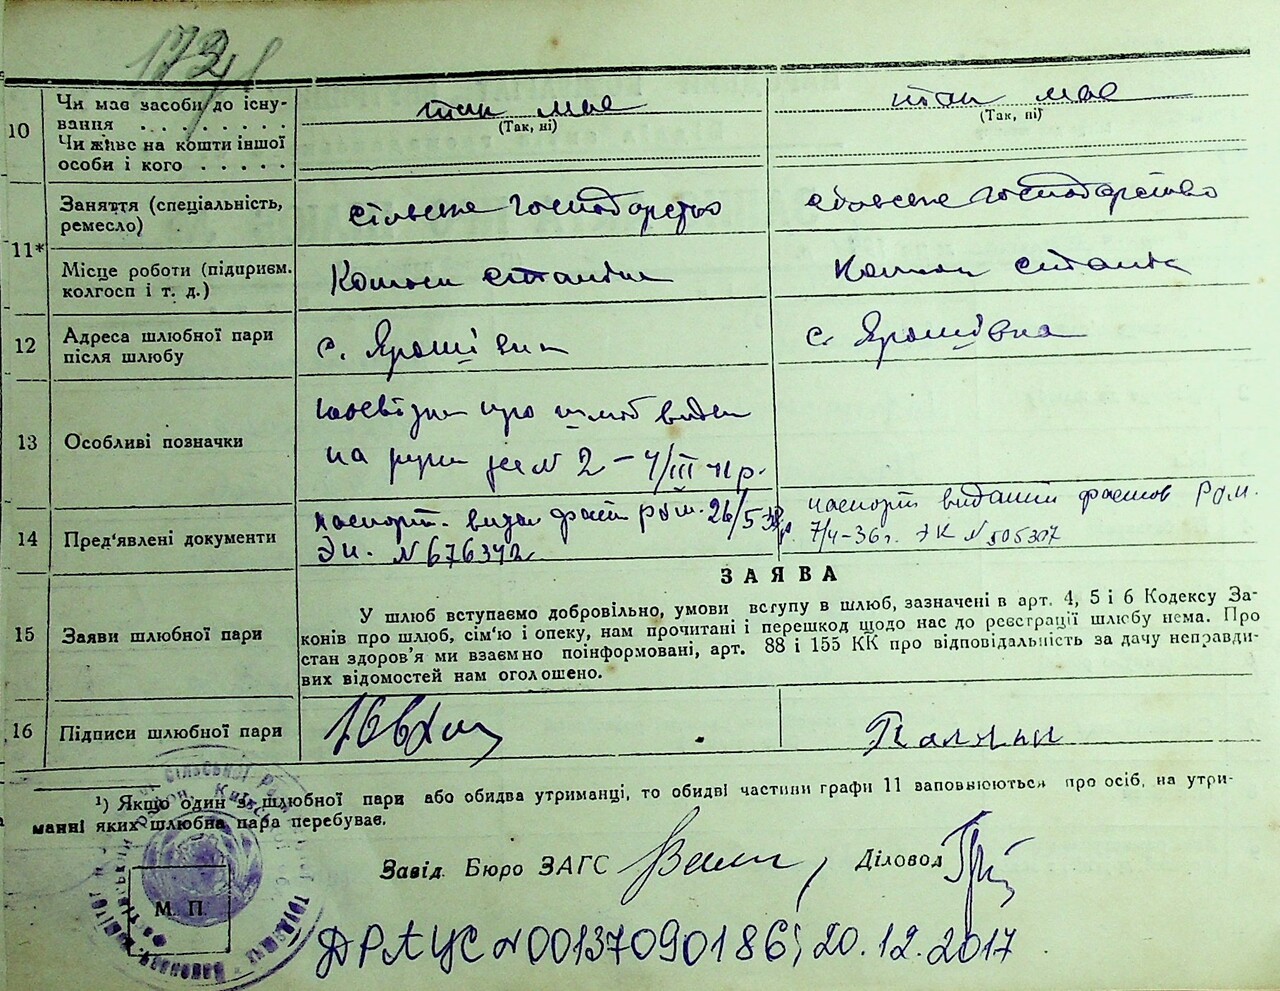 10 Чи має засоби до існу-
вання . . . . . . . .
так має
(Так, ні)
так має
(Так, ні)
Чи живе на кошти іншої
особи і кого . . . . .
11* Заняття (спеціальність,
ремесло)
сільське господарство
сільське господарство
Місце роботи (підприєм.
колгосп і т. д.)
12 Адреса шлюбної пари
після шлюбу
с. Ярошівка
с. Ярошівка
13 Особливі позначки
про шлюб видан
на руки за № 2 — 4/III 41 р.
14 Пред'явлені документи
паспорт. видан РУМ. 26/5 38 р.
№ 676342
паспорт виданий Фастов РУМ.
7/4-36 г. ЭК № 505307
ЗАЯВА
15 Заяви шлюбної пари
У шлюб вступаємо добровільно, умови вступу в шлюб, зазначені в арт. 4, 5 і 6 Кодексу За-
конів про шлюб, сім'ю і опеку, нам прочитані і перешкод щодо нас до реєстрації шлюбу нема. Про
стан здоров'я ми взаємно поінформовані, арт. 88 і 155 КК про відповідальність за дачу неправди-
вих відомостей нам оголошено.
16 Підписи шлюбної пари
¹) Якщо один з шлюбної пари або обидва утриманці, то обидві частини графи 11 заповнюються про осіб, на утри-
манні яких шлюбна пара перебуває.
Завід. Бюро ЗАГС
Діловод
М. П.
ДРАЦС № 00137090186; 20.12.2017